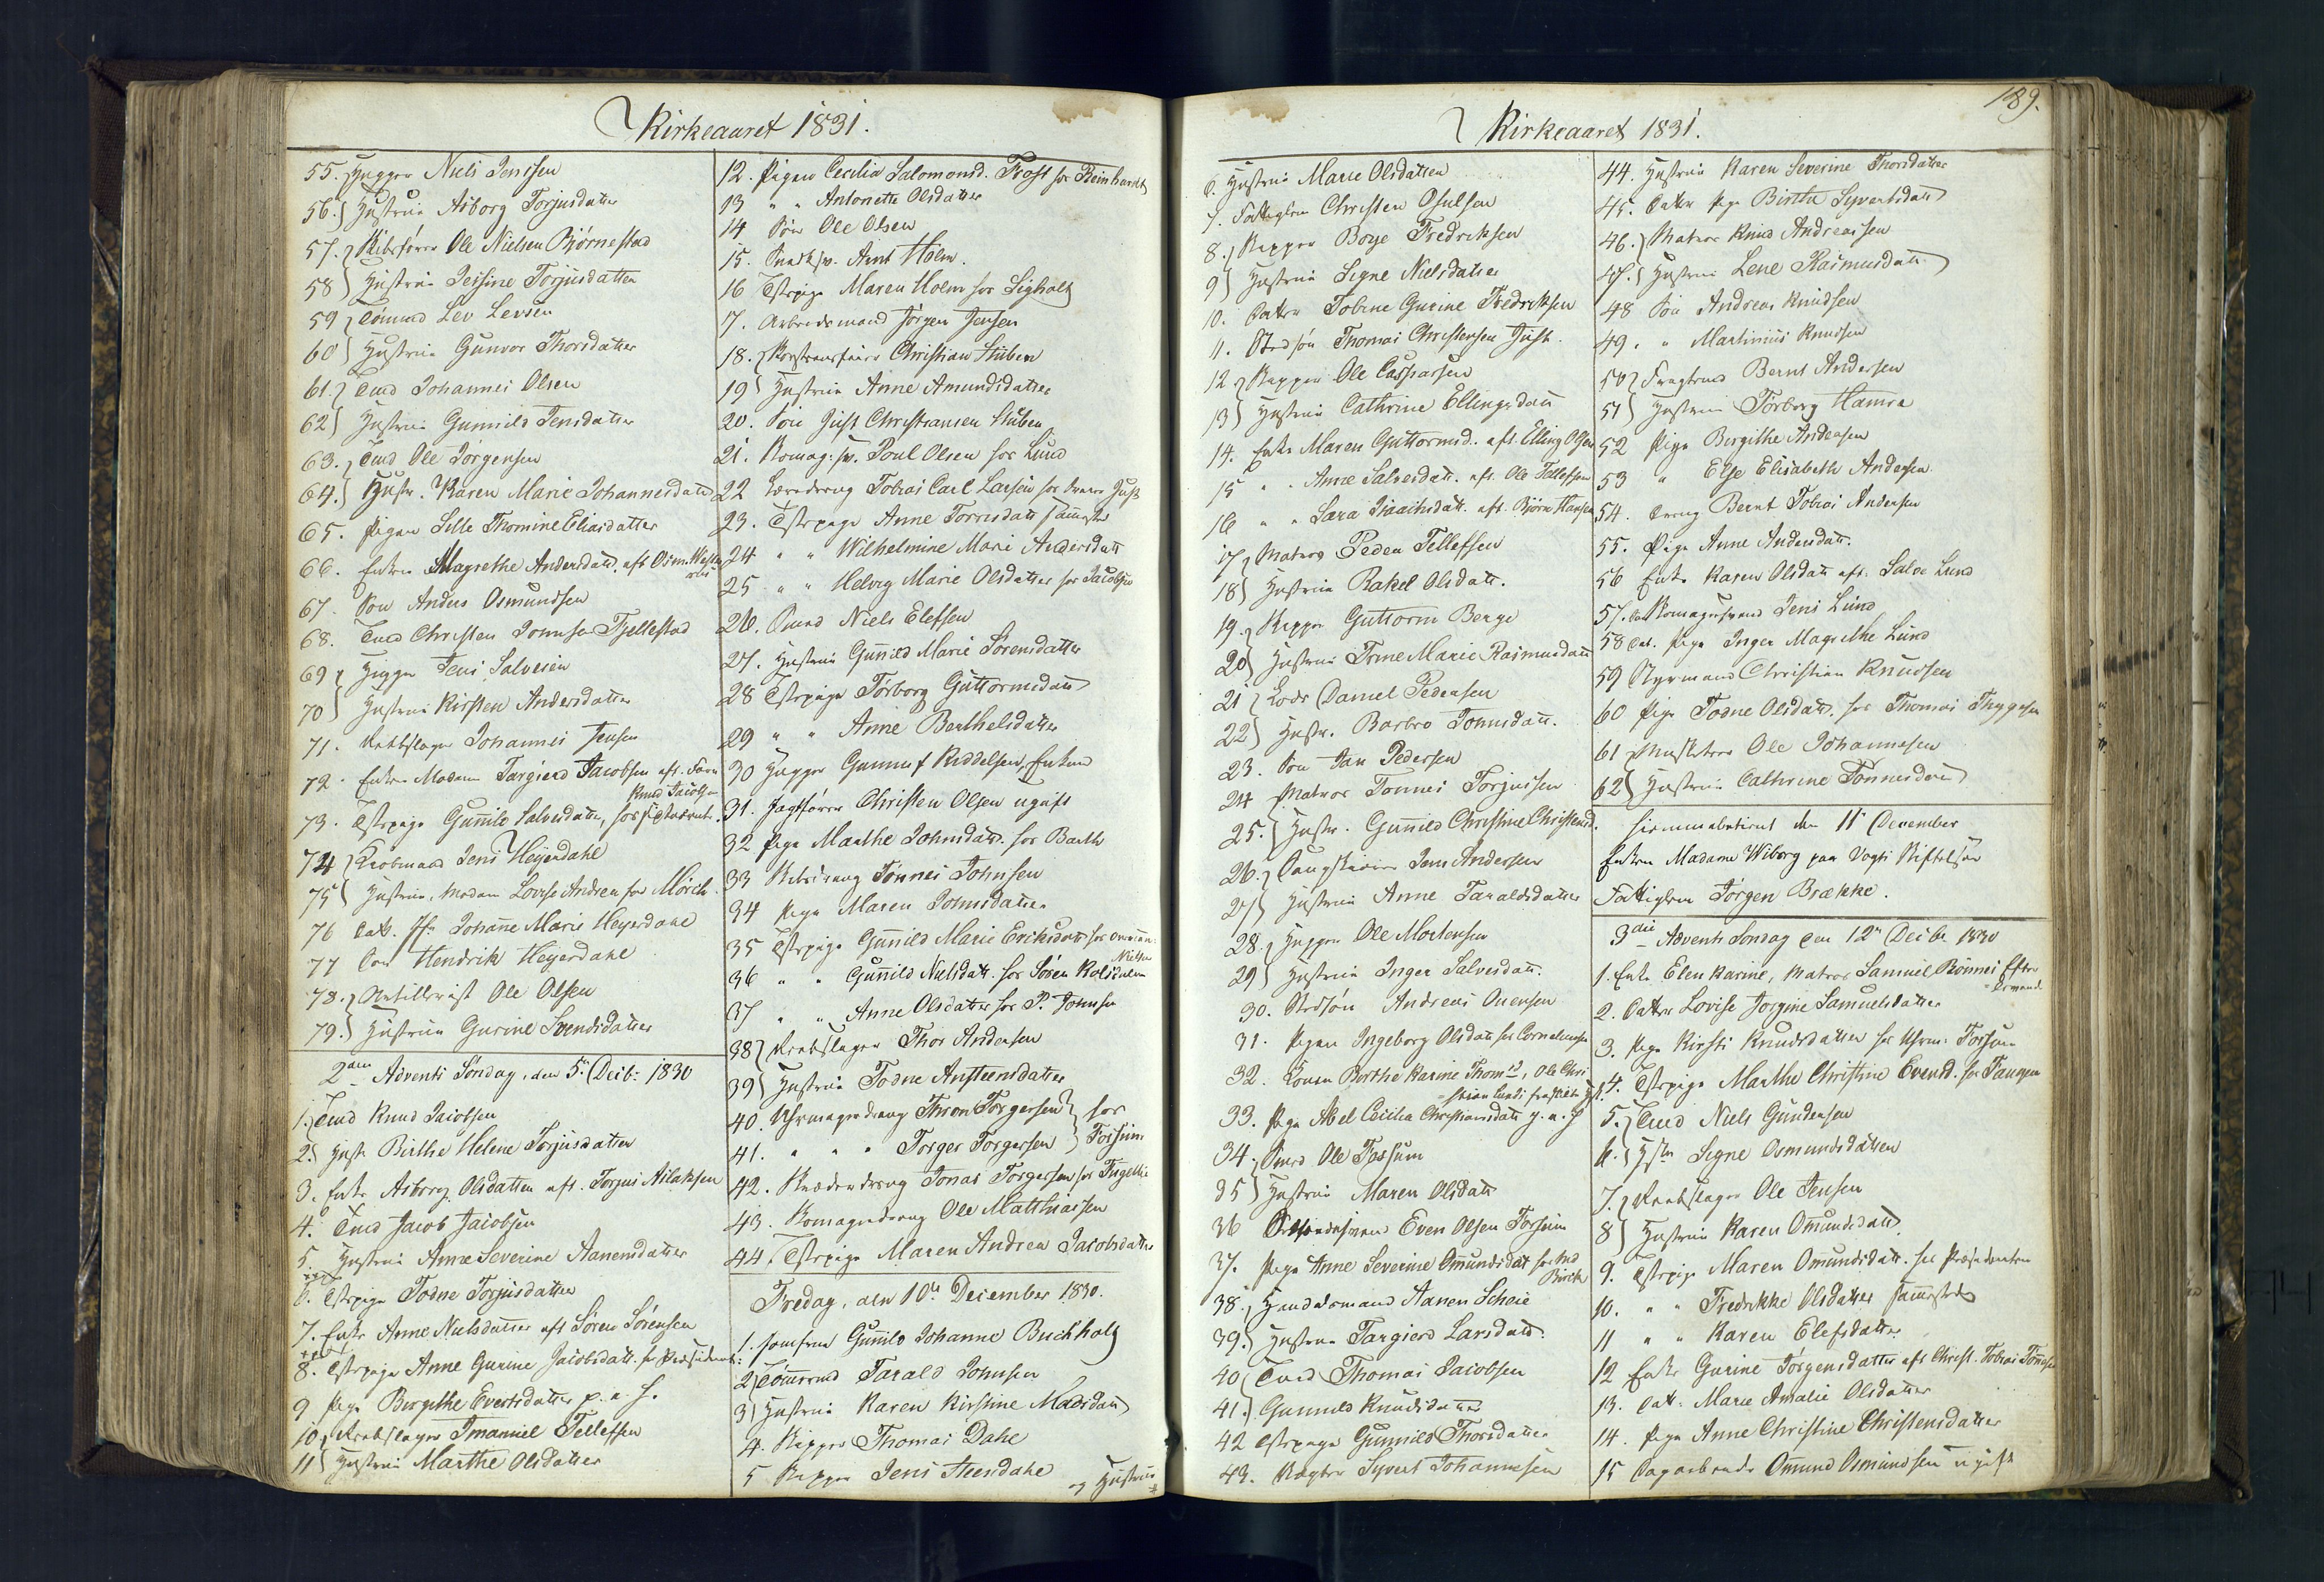 Kirkeaaret 1831.
55. Hugger Niels Jensen
56. Hustrue Asborg Torjusdatter
57. Skibsfører Ole Nielsen Bjørnestad
58 Hustrue Jessine Torjusdatter
59 Tømmd Lev Levsen
60 Hustrue Gunvor Thorsdatter
61. Tmd Johannes Olsen
62 Hustrue Gunnild Jensdatter
63. Tmd Ole Jørgensen
64. Hustr. Karen Marie Johannesdatt
65. Pigen Sille Thomine Eliasdatter
66. Enken Magrethe Andersdatt. eft. Osm.
67. Søn Anders Osmundsen
68. Tmd Christen Johnsen Fjellestad
69 Hugger Jens Salvesen
70 Hustrue Kirsten Andersdatter
71. Rebslager Johannes Jensen
72. Enken Madam Targierd Jacobsen eft.
Knud Jacobsen
73. Tstpige Gunnild Salvesdatter, hos
74 Kiøbmand Jens Heyerdahl
75 Hustrue, Madam Lovise Andrea før Mørch
76 Datt. Jfr Johanne Marie Heyerdahl
77 Søn Hendrik Heyerdahl
78. Artillerist Ole Olsen
79. Hustrue Gurine Svendsdatter
2den Advents Søndag, den 5te Decbr: 1830
1. Tmd Knud Jacobsen
2. Hustr Birthe Helene Torjusdatter
3. Enke Asborg Olsdatter eft. Torjus Aslaksen
4. Tmd Jacob Jacobsen
5. Hustrue Anne Severine Aanensdatter
6. Tstpige Todne Torjusdatter
7. Enke Anne Nielsdatter eft Søren Sørensen
8. Tstpige Anne Gurine Jacobsdatt. hos Præsident:
9 Pige Birgithe Evertsdatter p. a. H.
10. Rebslager Imanuel Tellefsen
11 Hustrue Marthe Olsdatter
12. Pigen Cecilia Salomonsd. Frost hos Reinhardt
13 " " Antonette Olsdatter
14 Søn Ole Olsen
15. Snedksv. Arnt Holm.
16 Tstpige Maren Holm hos Sigholt
17. Arbeidsmand Jørgen Jensen
18. Christian Stuben
19 Hustrue Anne Amundsdatter
20. Søn Just Christiansen Stuben
21. Skomag: sv. Poul Olsen hos Lund
22 Læredreng Tobias Carl Larsen hos Just
23. Tstpige Anne Torresdatt sammesteds
24 " " Wilhelmine Marie Andersdatt
25 " " Helvig Marie Olsdatter hos Jacobsen
26. Smed Niels Elefsen
27. Hustrue Gunnild Marie Sørensdatter
28 Tstpige Tørborg Guttormsdatt
29 " " Anne Berthelsdatter
30 Hugger Gunnuf Kiddelsen, Enkem
31. Jagtfører Christen Olsen ugift
32 Pige Marthe Johnsdatt. hos Barth
33 Skibsdreng Tønnes Johnsen
34 Pige Maren Johnsdatter
35 Tstpige Gunnild Marie Eriksdatt hos
Nielsen
36 " " Gunnild Nielsdatt. hos Søren Rolsdalen
37 " " Anne Olsdatter hos P. Johnsen
38 Rebslager Thor Andersen
39 Hustrue Todne Anstensdatter
40. Uhrmagerdreng Thron Torgersen hos
41. " " " Torger Torgersen Fossum
42. Skrædderdreng Jonas Torgersen hos
43. Skomagerdreng Ole Matthiassen
44. Tstpige Maren Andrea Jacobsdatter
Fredag, den 10de December 1830.
1. Jomfrue Gunnild Johanne Buchholtz
2 Tømmrmd Tarald Johnsen
3 Hustrue Karen Kirstine Madsdatt
4. Skipper Thomas Dahl
5 Skipper Jens Steendahl
og Hustrue
189.
Kirkeaaret 1831.
6. Hustrue Maren Olsdatter
7. Fattiglem Christen Osulsen
8. Skipper Børge Fredriksen
9 Hustrue Signe Nielsdatter
10. Datter Tobine Gurine Fredriksen
11. Stedsøn Thomas Christensen Just.
12 Skipper Ole Caspersen
13 Hustrue Cathrine Ellingsdatt
14. Enke Maren Guttormsd. eft. Elling Olsen
15 " . Anne Salvesdatt. eft. Ole Tellefsen
16 " " Sara Isaachsdatt. eft. Bjørn Hansen
17 Matros Peder Tellefsen
18 Hustrue Rakel Olsdatt.
19. Skipper Guttorm Berge
20 Hustrue Trine Marie Rasmusdatt
21 Lods Daniel Pedersen
22 Hustr. Barbro Tommsdatt.
23. Søn Jan Pedersen
24 Matros Tønnes Torjussen
25. Hustr. Gunnild Christine Christensd.
26. Jens Andersen
27 Hustrue Anne Taraldsdatter
28. Hugger Ole Mortensen
29 Hustrue Inger Salvesdatt.
30. Stedsøn Andreas Ouensen
31. Pigen Ingeborg Olsdatt hos Corneliussen
32. Konen Berthe Karine Thomsd, Ole Chri
stian Lunds fraskilte
33. Pige Abel Cecilia Christiansdatt p. a. H
34. Smed Ole Fossum
35 Hustrue Maren Olsdatt
36 Even Olsen Fossum
37. Pige Anne Severine Omundsdatt hos Md
Birch
38. Handelsmand Aanen Scheie
39. Hustrue Targierd Larsdatt.
40 Tmd Thomas Jacobsen
41. Gunnild Knudsdatter
42 Tstpige Gunnild Thorsdatter
43. Vægter Syvert Johannesen
44. Hustrue Karen Severine Thorsdatter
45. Datter Pige Birthe Syvertsdatt
46. Matros Knud Andreassen
47. Hustrue Lene Rasmusdatt
48 Søn Andreas Knudsen
49. " Martinius Knudsen
50 Fragtmd Bernt Andersen
51 Hustrue Tørborg Hamre
52 Pige Birgithe Andersen
53 " Else Elisabeth Andersen
54. Dreng Bernt Tobias Andersen
55. Pige Anne Andersdatt.
56 Enke Karen Olsdatt eft. Salve Lund
57. Skomagersvend Jens Lund
58 Dat. Pige Inger Magrethe Lund
59 Styrmand Christian Knudsen
60 Pige Todne Olsdatt. hos Thomas Thygesen
61 Musketeer Ole Johannesen
62 Hustrue Cathrine Tønnesdatt
hiemmebetient den 11te December
Enken Madame Wiborg paa Vogts Stiftelse
Fattiglem Jørgen Brække.
3die Advents Søndag den 12te Decbr 1830
1. Enke Elen Karine, Matros Samuel Rønnes Efter
2. Datter Lovise Jorgine Samuelsdatter
3. Pige Kirsti Knudsdatter hos Uhrm. Fossum
4. Tstpige Marthe Christine Evensd. hos Faugen
5. Tmd Niels Gundersen
6. Hstr Signe Osmundsdatter
7. Rebslager Ole Jensen
8 Hustrue Karen Omundsdatt
9. Tstpige Maren Omundsdatt. hos Præsidenten
10. " " Fredrikke Olsdatter sammesteds
11 " " Karen Elefsdatter
12 Enke Gurine Jørgensdatter eft Christ. Tobias Tønnesen
13. Datt. Marie Amalie Olsdatter
14. Pige Anne Christine Christensdatter
15 Dagarbeider Omund Osmundsen ugift